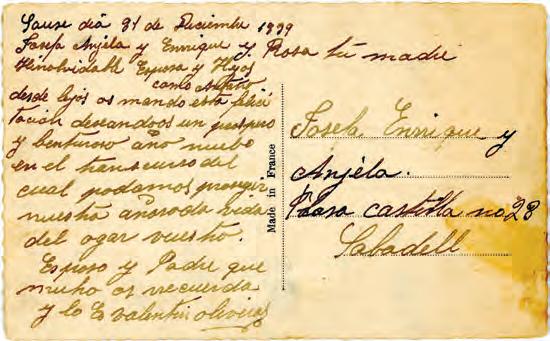 dia 31 de Diciembre 1939
Josefa Anjela y Enrrique y Rosa tu madre
Hinolvidable Esposa y Hijos
como
desde lejos os mando esta felici
tacion deseandoos un prospero
y benturoso año nuebo
en el transcurso del
cual podamos proseguir
nuestra añorada vida
del ogar vuestro.
Esposo y Padre que
mucho os recuerda
y lo Es valentin oliveras
Made in France
Josefa Enrrique y
Anjela.
castilla no 28
Sabadell